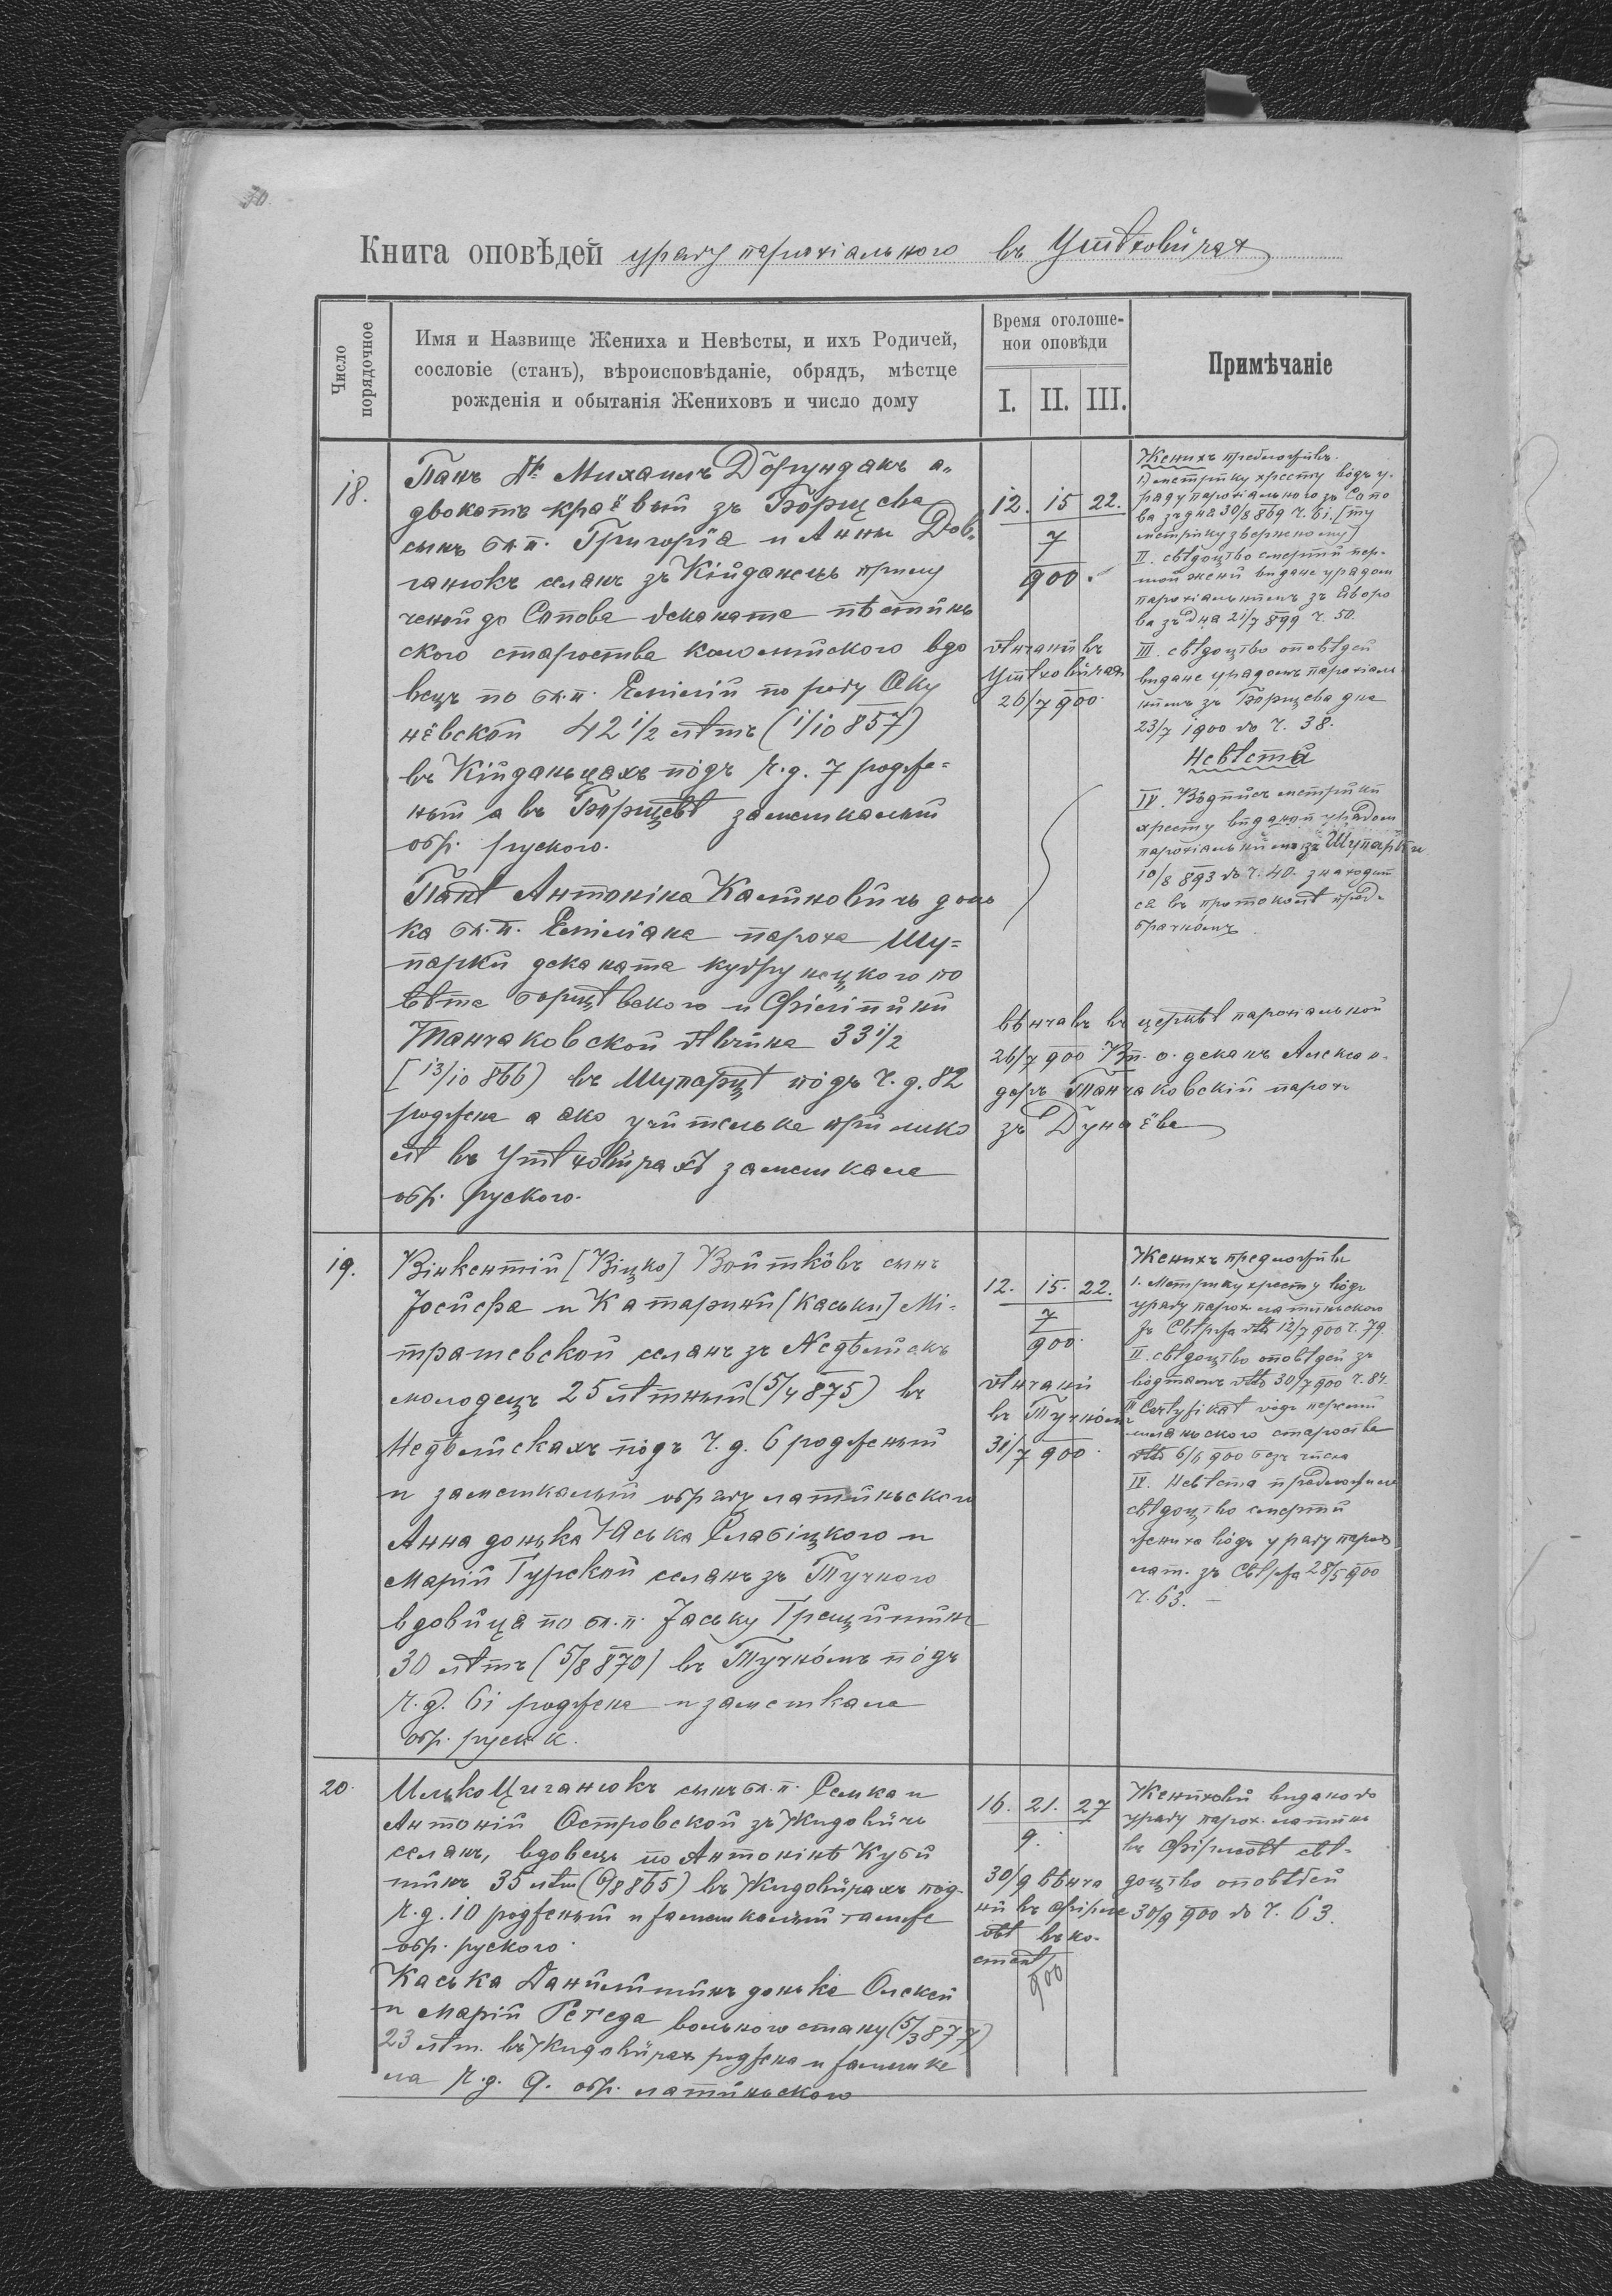 30.
Книга оповѣдей уряду парохіального въ Устѣховичах
Число порядочное
Имя и Назвище Жениха и Невѣсты, и ихъ Родичей,
сословіе (станъ), вѣроисповѣданіе, обрядъ, мѣстце
рожденія и обытанія Жениховъ и число дому
Время оголоше-
нои оповѣди
I. II. III.
Примѣчаніе
18.
Панъ Др Михаилъ Дорундакъ а„
двокатъ краёвый зъ Борщева
сынъ бл. п. Григорія и Анны Дов„
ганюкъ селянъ зъ Кійданець прилу
ченой до Сопова деканата пѣстинь
ского староства коломійского вдо
вець по бл. п. Емілій по роду Оку
нёвской 42 1/2 лѣтъ (1/10 857)
въ Кійданьцахъ подъ ч. д. 7 родже=
ный а въ Борщевѣ замешкалый
обр. руского.
Паннѣ Антоніна Калиновичъ донь
ка бл. п. Еміліана пароха Шу=
парки деканата кудринецкого по
вѣта борщѣвского и Філіпины
Танчаковской дѣвина 33 1/2
[13/10 866) въ Шупарцѣ подъ ч. д. 82
роджена а яко учителька при шко
лѣ въ Устѣховичахъ замешкала
обр. руского.
12. 15 22.
7
900
вѣнчаній въ
Устѣховичах
26/7 900.
вѣнчавъ въ церквѣ парохіальной
26/7 900 Вп. о. деканъ Алексан-
деръ Танчаковскій парох
зъ Дунаёва
Женихъ предложивъ.
1) метрику хресту водъ у-
ряду парохіального зъ Сопо
ва зъ дня 30/8 869 ч. 61. [ту
метрику звернено му]
II. свѣдоцтво смерти пер-
шой жены видане урядом
парохіальнымъ зъ Яворо
ва зъ дня 21/7 899 ч. 50.
III. свѣдоцтво оповѣдей
видане урядомъ парохіаль
нымъ зъ Борщева дня
23/7 1900 до ч. 38.
Невѣста
IV. Водписъ метрики
хресту виданой урядом
парохіальнымъ зъ Шупарки
10/8 893 до ч. 40. знаходит
ся въ протоколѣ пред-
брачномъ.
19.
Вінкентій [Віцко] Войтковъ сынъ
Іосифа и Катарини [Каськи] Мі-
трашевской селянъ зъ Недѣлискъ
молодецъ 25 лѣтный (5/4 875) въ
Недѣлискахъ подъ ч. д. 6 родженый
и замешкалый обряду латиньского
Анна донька Яська Слабіцкого и
Марій Гурской селянъ зъ Тучного
вдовиця по бл. п. Яську Грещишинѣ
30 лѣтъ (5/8 870) въ Тучномъ подъ
ч. д. 61 роджена и замешкала
обр. руск.
12. 15. 22.
7
900.
вѣнчаній
въ Тучномъ
31/7 900.
Женихъ предложивъ
1. Метрику хресту водъ
уряду парох. латиньского
зъ Свѣржа dtto 12/7 900 ч. 79
II. свѣдоцтво оповѣдей зъ
водтамъ dtto 30/7 900 ч. 84.
III Certyfikat водъ перемиш
ляньского староства
dtto 6/6 900 безъ числа
IV. Невѣста предложила
свѣдоцтво смерти
жениха водъ уряду парох
лат. зъ Свѣржа 28/5 900
ч. 63.
20.
Илько Циганюкъ сынъ бл. п. Семка и
Антоній Островской зъ Жидовичъ
селянъ, вдовець по Антонінѣ Куби
шинъ 35 лѣт (9/8 865) въ Жидовичахъ под
ч. д. 10 родженый и замешкалый тамже
обр. руского.
Каська Данилишинъ донька Олексы
и Марій Гегеда вольного стану (5/3 877)
23 лѣт. въ Жидовичах роджена и замешка
ла ч. д. 9. обр. латиньского
16. 21. 27
9.
30/9 вѣнча
ни въ Фірле
овѣ въ ко-
стелѣ
900
Женихови видано до
уряду парох. латинь
въ Фірлеовѣ свѣ-
доцтво оповѣдей
30/9 900 до ч. 63.